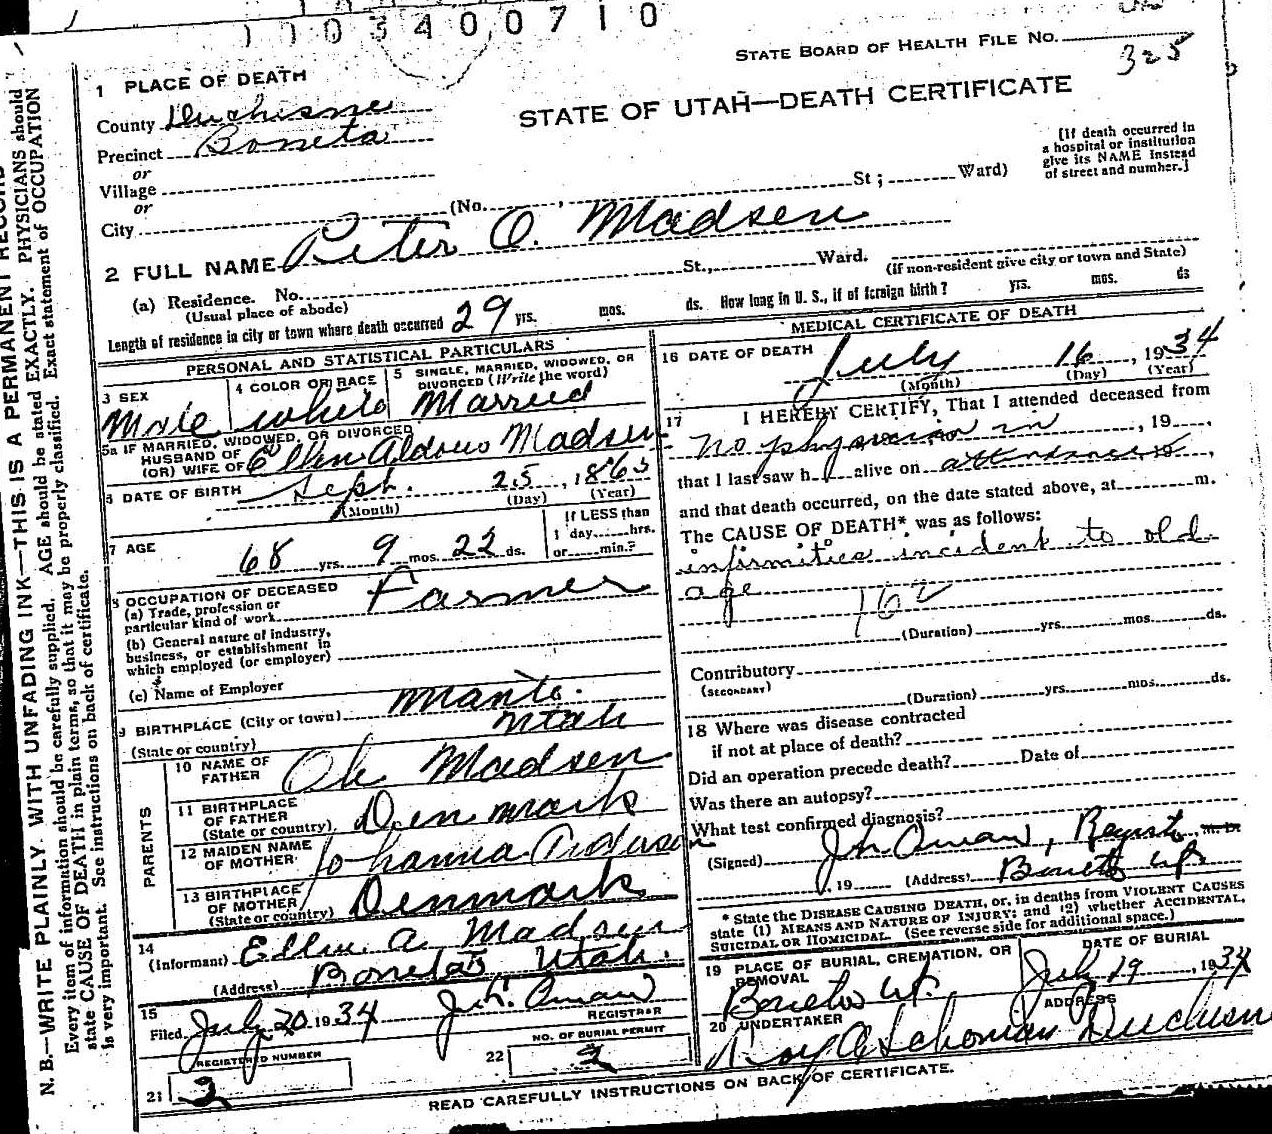 003400710
STATE BOARD OF HEALTH FILE NO.
325
STATE OF UTAH—DEATH CERTIFICATE
1 PLACE OF DEATH
County Duchesne
Precinct Boneta
or
Village
or
City
(No. St; Ward)
[If death occurred in
a hospital or institution
give its NAME instead
of street and number.]
2 FULL NAME Peter O. Madsen
(a) Residence. No. St., Ward.
(Usual place of abode)
(If non-resident give city or town and State)
Length of residence in city or town where death occurred 29 yrs. mos. ds. How long in U. S., if of foreign birth? yrs. mos. ds
PERSONAL AND STATISTICAL PARTICULARS
3 SEX
Male
4 COLOR OR RACE
white
5 SINGLE, MARRIED, WIDOWED, OR
DIVORCED (Write the word)
Married
5a IF MARRIED, WIDOWED, OR DIVORCED
HUSBAND OF
(OR) WIFE OF Ellen Aldous Madsen
6 DATE OF BIRTH Sept. 25, 1865
(Month) (Day) (Year)
7 AGE
68 yrs. 9 mos. 22 ds.
If LESS than
1 day hrs.
or min.?
8 OCCUPATION OF DECEASED
(a) Trade, profession or
particular kind of work Farmer
(b) General nature of industry,
business, or establishment in
which employed (or employer)
(c) Name of Employer
9 BIRTHPLACE (City or town) Manti.
(State or country) Utah
PARENTS
10 NAME OF
FATHER Ole Madsen
11 BIRTHPLACE
OF FATHER
(State or country) Denmark
12 MAIDEN NAME
OF MOTHER Johanna
13 BIRTHPLACE
OF MOTHER
(State or country) Denmark
14
(Informant) Ellen A. Madsen
(Address) Boneta, Utah.
15
Filed July 20 1934 Jno. Oman
REGISTRAR
REGISTERED NUMBER
21 2
NO. OF BURIAL PERMIT
22 2
MEDICAL CERTIFICATE OF DEATH
16 DATE OF DEATH July 16, 1934
(Month) (Day) (Year)
17 I HEREBY CERTIFY, That I attended deceased from
No physician in , 19
that I last saw h alive on attendance,
and that death occurred, on the date stated above, at m.
The CAUSE OF DEATH* was as follows:
infirmities incident to old
age
162
(Duration) yrs. mos. ds.
Contributory
(SECONDARY)
(Duration) yrs. mos. ds.
18 Where was disease contracted
if not at place of death?
Did an operation precede death? Date of
Was there an autopsy?
What test confirmed diagnosis?
(Signed) Jno Oman, M. D.
, 19 (Address) Boneta Ut
* State the DISEASE CAUSING DEATH, or, in deaths from VIOLENT CAUSES
state (1) MEANS AND NATURE OF INJURY; and (2) whether ACCIDENTAL,
SUICIDAL OR HOMICIDAL. (See reverse side for additional space.)
19 PLACE OF BURIAL, CREMATION, OR
REMOVAL
Boneta Ut.
DATE OF BURIAL
July 19, 1934
20 UNDERTAKER
Roy A Schonian
ADDRESS
Duchesne
READ CAREFULLY INSTRUCTIONS ON BACK OF CERTIFICATE.
N. B.—WRITE PLAINLY. WITH UNFADING INK—THIS IS A PERMANENT RECORD
Every item of information should be carefully supplied. AGE should be stated EXACTLY. PHYSICIANS should
state CAUSE OF DEATH in plain terms, so that it may be properly classified. Exact statement of OCCUPATION
is very important. See instructions on back of certificate.